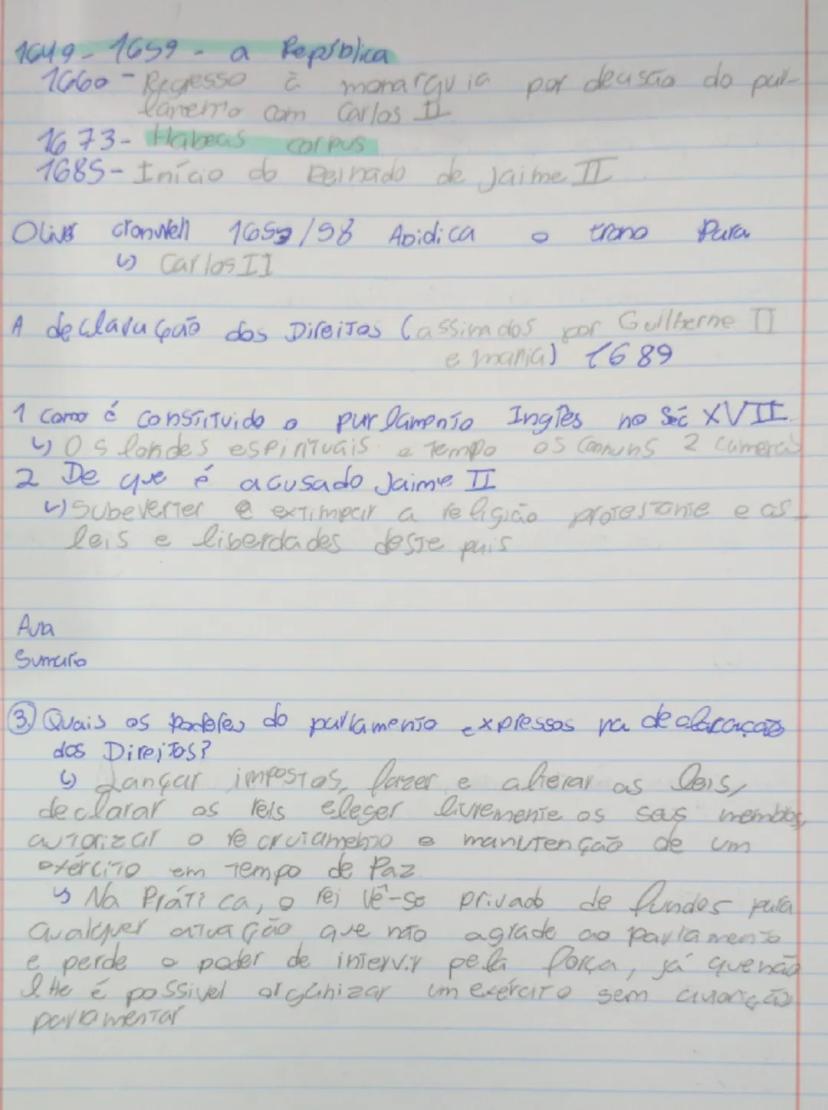 1649 - 1659 - a República
1660 - Regresso à monarquia por decisão do par-
lamento com Carlos II
1673 - Habeas corpus
1685 - Início do Reinado de Jaime II
Oliver Cromwell /58 Abidica o trono Para
↳ Carlos II
A declaração dos Direitos (assinados por Guilherme II
e maria) 1689
1 Como é constituido o parlamento Ingles no Séc XVII
↳ Os londes espirituais e tempo os comuns 2 camaras
2 De que é acusado Jaime II
↳ Subeverter e extimpar a religião protestante e as
leis e liberdades deste pais
Aula
Sumario
③ Quais os poderes do parlamento expressos na declaração
dos Direitos?
↳ Lançar impostos, fazer e alterar as leis,
declarar os reis eleger livremente os seus membros,
autorizar o e manutenção de um
exército em tempo de Paz
↳ Na Prática, o rei vê-se privado de fundos para
qualquer atuação que não agrade ao parlamento
e perde o poder de intervir pela força, já que não
lhe é possivel organizar um exército sem
parlamentar